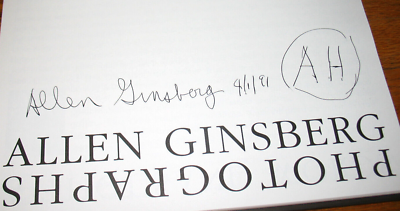 Allen Ginsberg 4/1/91 AH
ALLEN GINSBERG
PHOTOGRAPHS